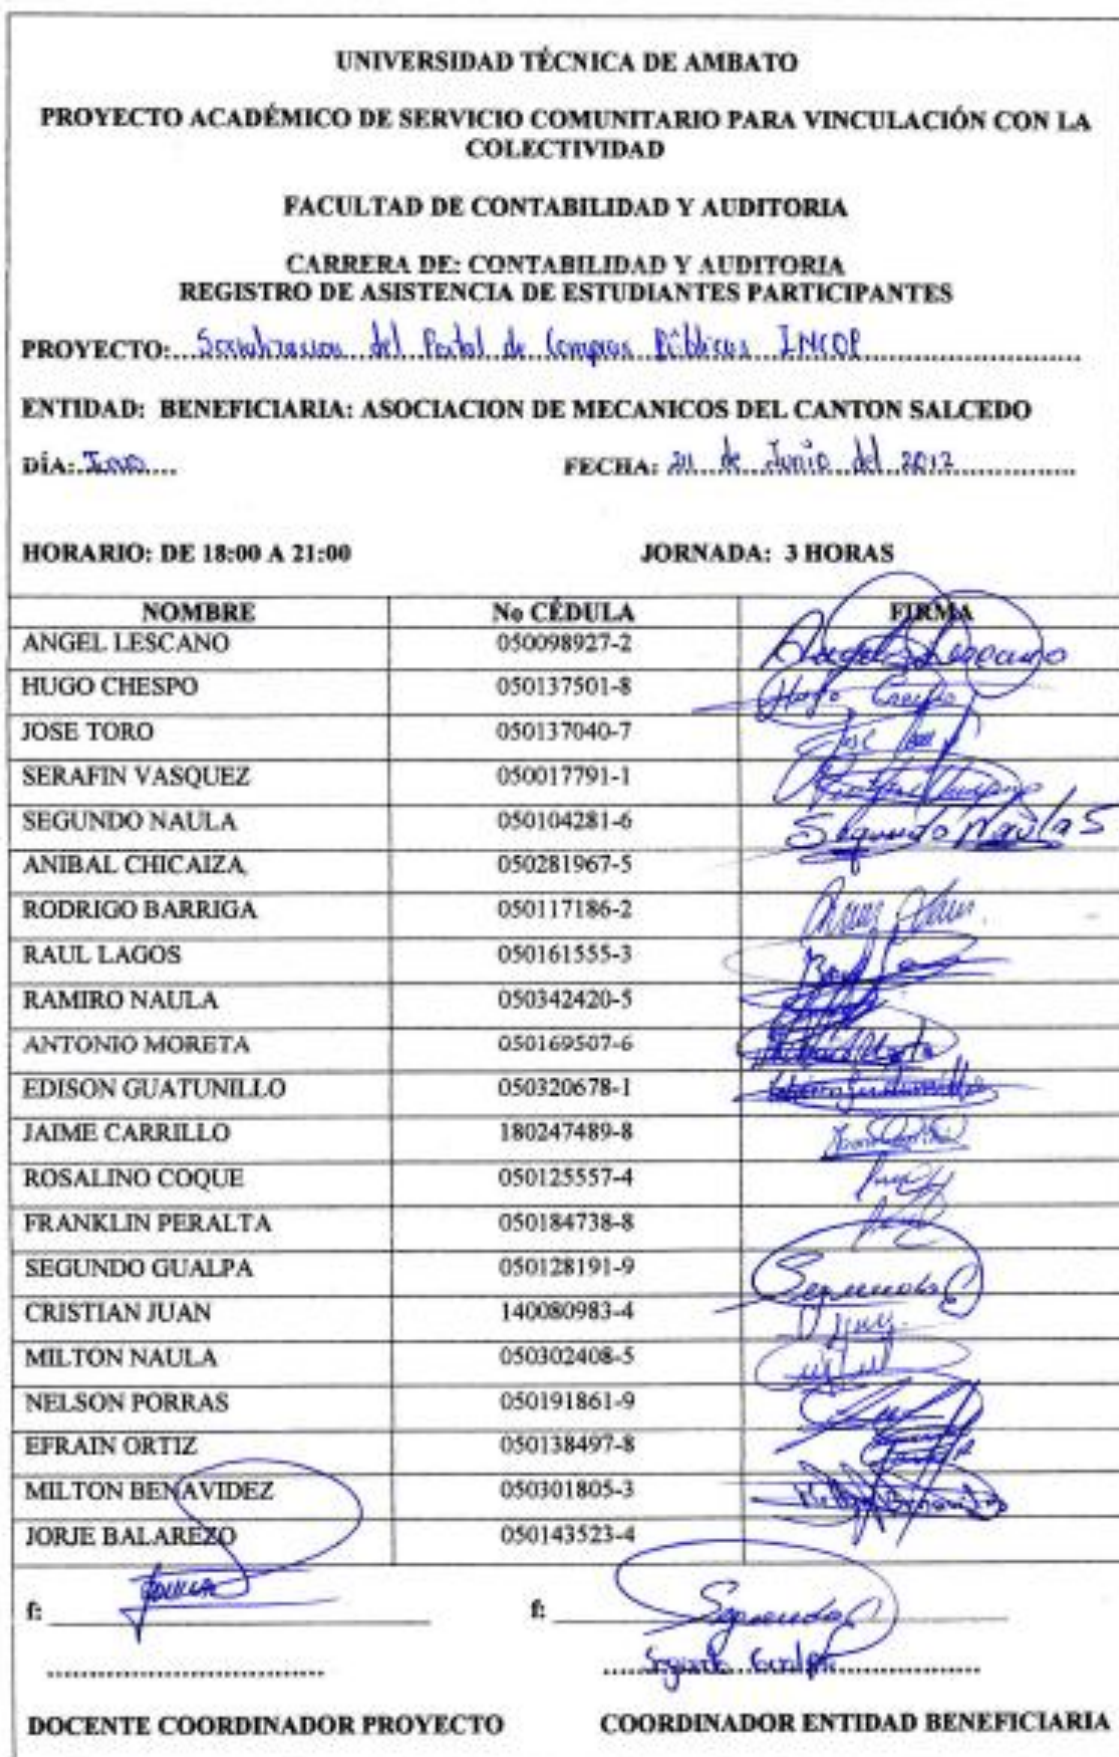 UNIVERSIDAD TÉCNICA DE AMBATO
PROYECTO ACADÉMICO DE SERVICIO COMUNITARIO PARA VINCULACIÓN CON LA
COLECTIVIDAD
FACULTAD DE CONTABILIDAD Y AUDITORIA
CARRERA DE: CONTABILIDAD Y AUDITORIA
REGISTRO DE ASISTENCIA DE ESTUDIANTES PARTICIPANTES
PROYECTO: Socializacion del Portal de Compras Públicas INCOP
ENTIDAD: BENEFICIARIA: ASOCIACION DE MECANICOS DEL CANTON SALCEDO
DÍA: FECHA: 21 de Junio del 2012
HORARIO: DE 18:00 A 21:00 JORNADA: 3 HORAS
NOMBRE No CÉDULA FIRMA
ANGEL LESCANO 050098927-2 Angel Lescano
HUGO CHESPO 050137501-8 Hugo Crespo
JOSE TORO 050137040-7 Jose
SERAFIN VASQUEZ 050017791-1
SEGUNDO NAULA 050104281-6 Segundo Naula S
ANIBAL CHICAIZA 050281967-5
RODRIGO BARRIGA 050117186-2
RAUL LAGOS 050161555-3
RAMIRO NAULA 050342420-5
ANTONIO MORETA 050169507-6
EDISON GUATUNILLO 050320678-1
JAIME CARRILLO 180247489-8
ROSALINO COQUE 050125557-4
FRANKLIN PERALTA 050184738-8
SEGUNDO GUALPA 050128191-9 Segundo G
CRISTIAN JUAN 140080983-4
MILTON NAULA 050302408-5
NELSON PORRAS 050191861-9
EFRAIN ORTIZ 050138497-8
MILTON BENAVIDEZ 050301805-3 Milton Benavidez
JORJE BALAREZO 050143523-4
f: f: Segundo G
Segundo Gualpa
DOCENTE COORDINADOR PROYECTO COORDINADOR ENTIDAD BENEFICIARIA